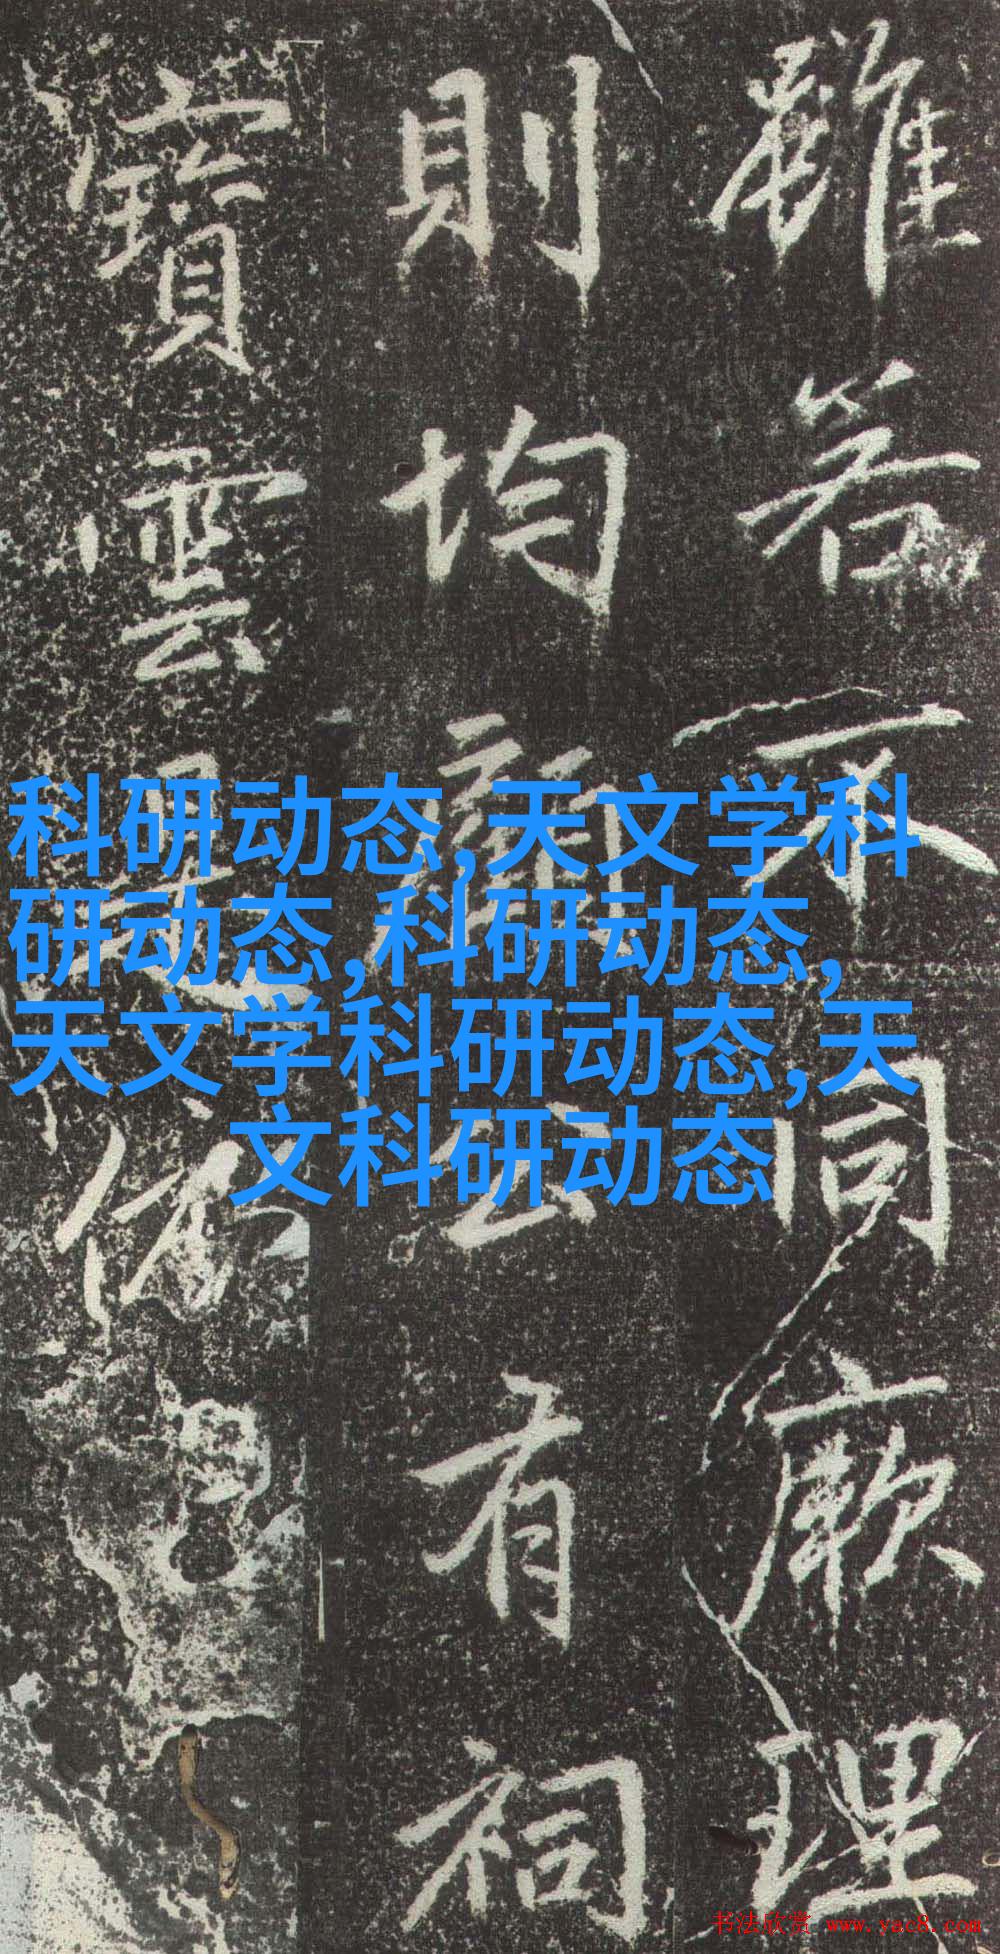 雖若不同厥理
則均公有祠
寶雲
科研动态,天文学科
研动态,科研动态,
天文学科研动态,天
文科研动态
书法欣赏 www.yac8.com